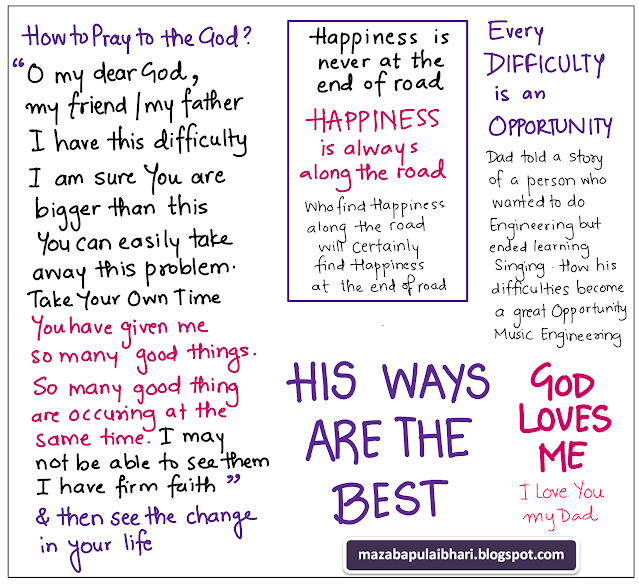 How to Pray to the God?
“O my dear God,
my friend / my father
I have this difficulty
I am sure You are
bigger than this
You can easily take
away this problem.
Take Your Own Time
You have given me
so many good things.
So many good thing
are occuring at the
same time. I may
not be able to see them
I have firm faith ”
& then see the change
in your life
Happiness is
never at the
end of road
HAPPINESS
is always
along the road
Who find Happiness
along the road
will certainly
find Happiness
at the end of road
Every
DIFFICULTY
is an
OPPORTUNITY
Dad told a story
of a person who
wanted to do
Engineering but
ended learning
Singing. How his
difficulties become
a great Opportunity
Music Engineering
HIS WAYS
ARE THE
BEST
GOD
LOVES
ME
I Love You
my Dad
mazabapulaibhari.blogspot.com